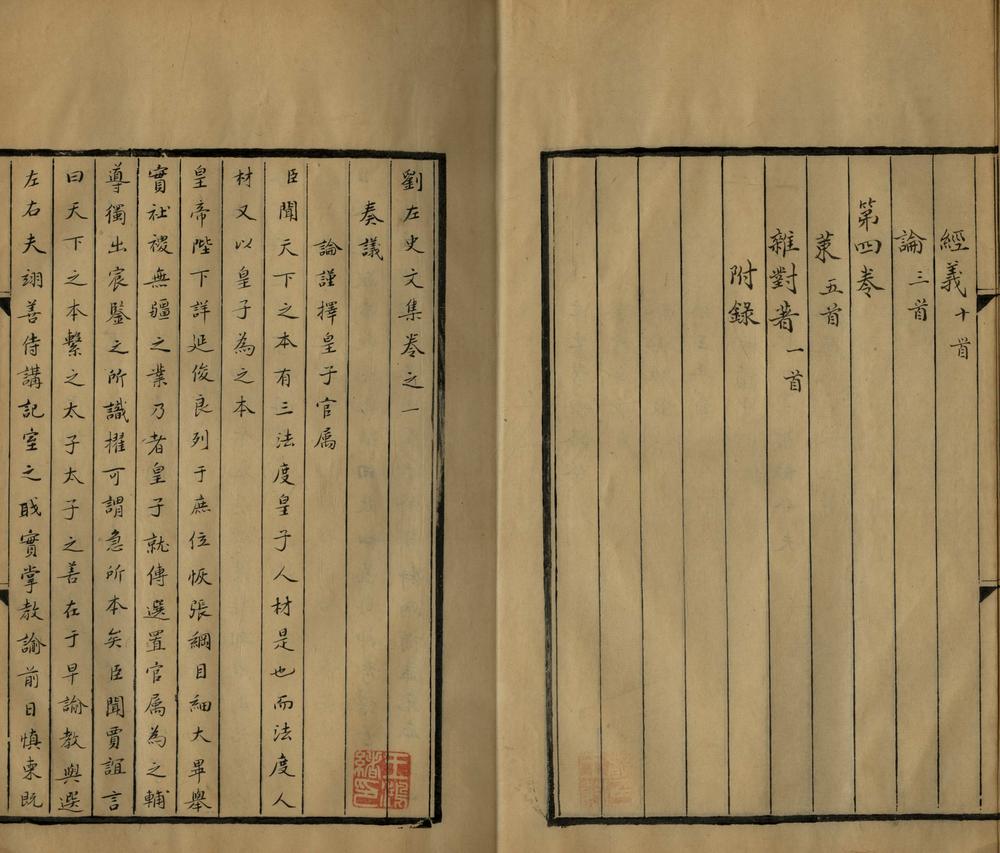 經義十首
論三首
第四卷
策五首
雜對著一首
附錄
劉左史文集卷之一
奏議
論謹擇皇子官属
臣聞天下之本有三法度皇子人材是也而法度人
材又以皇子為之本
皇帝陛下詳延俊良列于庶位恢張綱目細大畢舉
實社稷無疆之業乃者皇子就傅選置官属為之輔
導獨出宸鑒之所識擢可謂急所本矣臣聞賈誼言
曰天下之本繫之太子太子之善在于早諭教與選
左右夫翊善侍講記室之職實掌教諭前日慎柬既
王鴻緒印